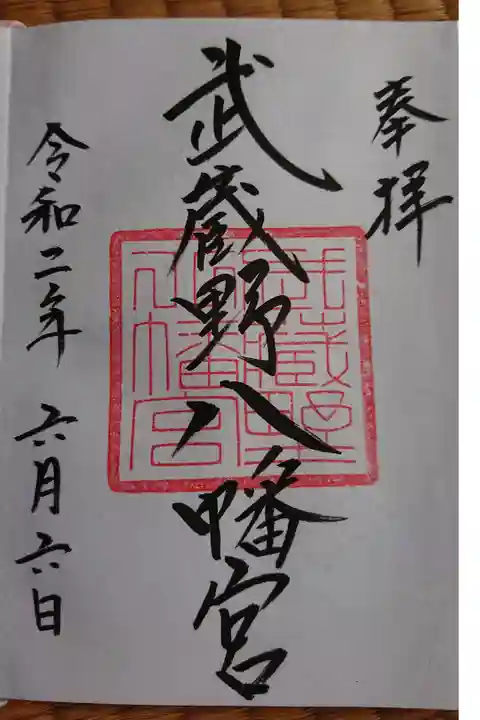 奉拝
武蔵野八幡宮
令和二年 六月六日
武蔵野
八幡宮